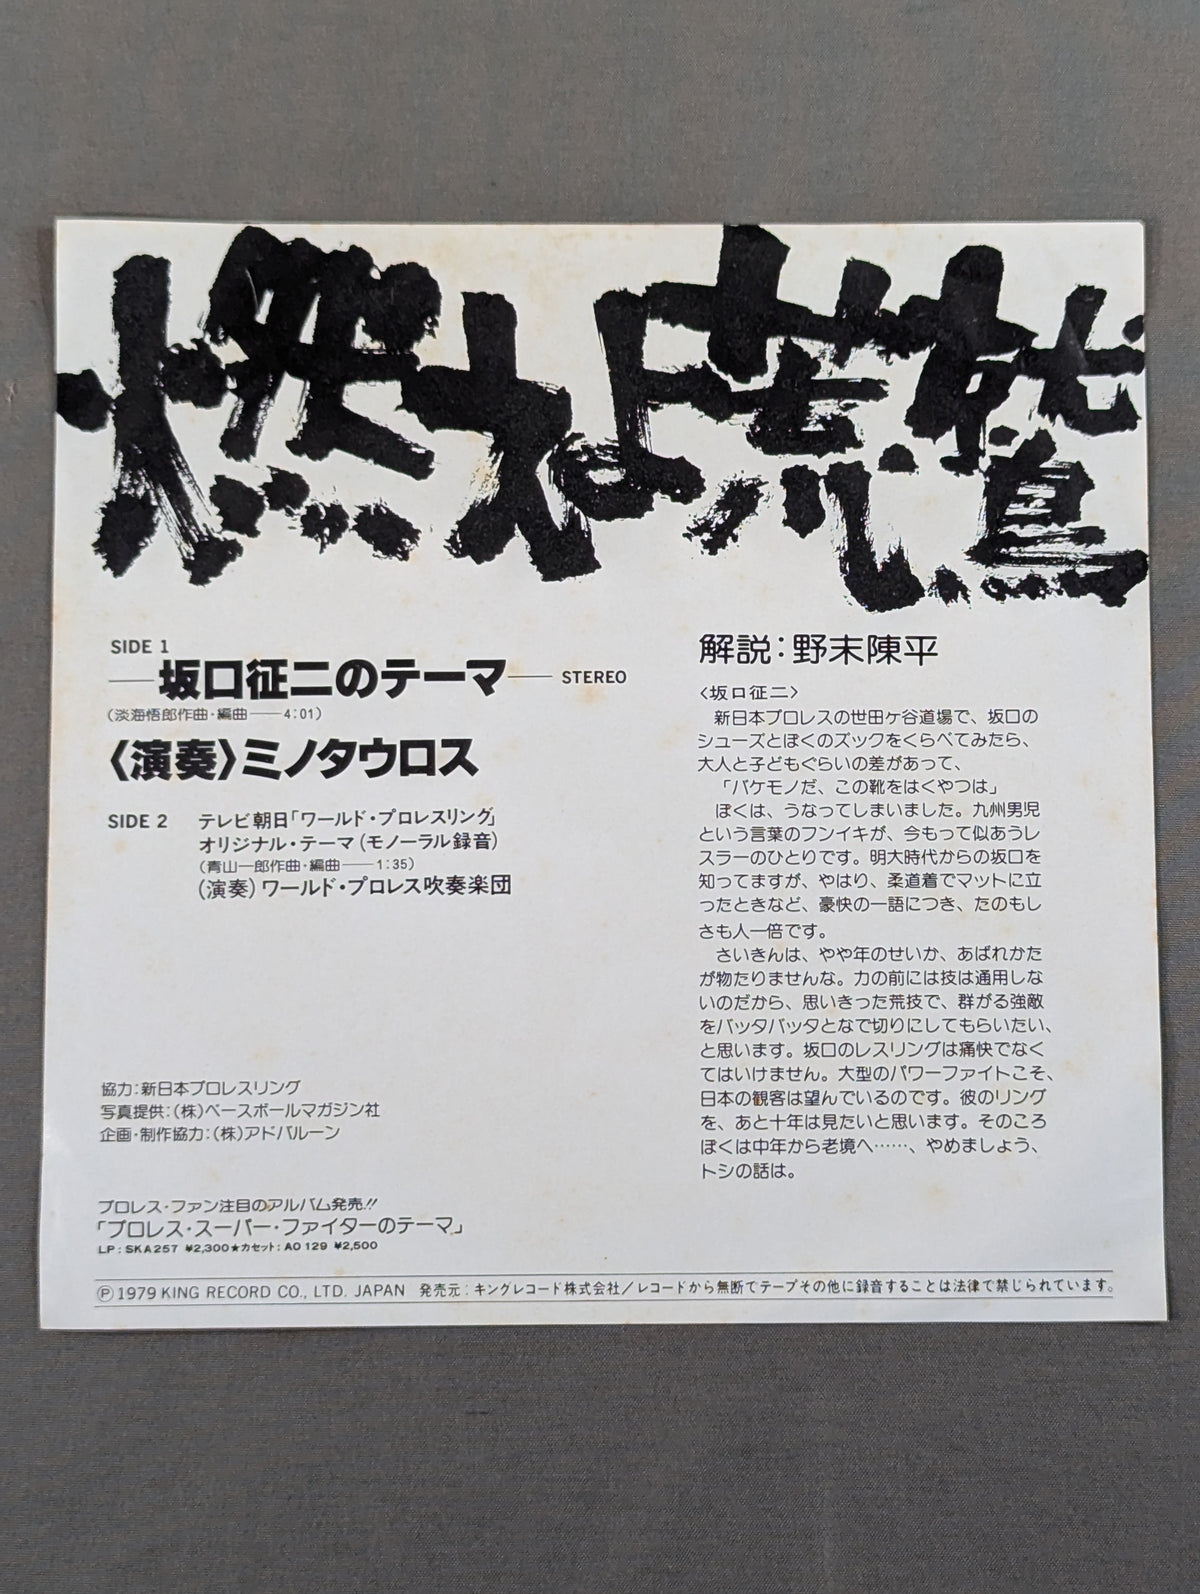 燃えよ荒鷲
SIDE 1
——坂口征二のテーマ—— STEREO
(淡海悟郎作曲・編曲——4:01)
〈演奏〉ミノタウロス
SIDE 2 テレビ朝日「ワールド・プロレスリング」
オリジナル・テーマ(モノーラル録音)
(青山一郎作曲・編曲——1:35)
(演奏)ワールド・プロレス吹奏楽団
協力:新日本プロレスリング
写真提供:(株)ベースボールマガジン社
企画・制作協力:(株)アドバルーン
プロレス・ファン注目のアルバム発売!!
「プロレス・スーパー・ファイターのテーマ」
LP:SKA257 ¥2,300★カセット:AO129 ¥2,500
解説:野末陳平
〈坂口征二〉
新日本プロレスの世田ヶ谷道場で、坂口の
シューズとぼくのズックをくらべてみたら、
大人と子どもぐらいの差があって、
「バケモノだ、この靴をはくやつは」
ぼくは、うなってしまいました。九州男児
という言葉のフンイキが、今もって似あうレ
スラーのひとりです。明大時代からの坂口を
知ってますが、やはり、柔道着でマットに立
ったときなど、豪快の一語につき、たのもし
さも人一倍です。
さいきんは、やや年のせいか、あばれかた
が物たりませんな。力の前には技は通用しな
いのだから、思いきった荒技で、群がる強敵
をバッタバッタとなで切りにしてもらいたい、
と思います。坂口のレスリングは痛快でなく
てはいけません。大型のパワーファイトこそ、
日本の観客は望んでいるのです。彼のリング
を、あと十年は見たいと思います。そのころ
ぼくは中年から老境へ……、やめましょう、
トシの話は。
Ⓟ1979 KING RECORD CO., LTD. JAPAN 発売元:キングレコード株式会社/レコードから無断でテープその他に録音することは法律で禁じられています。